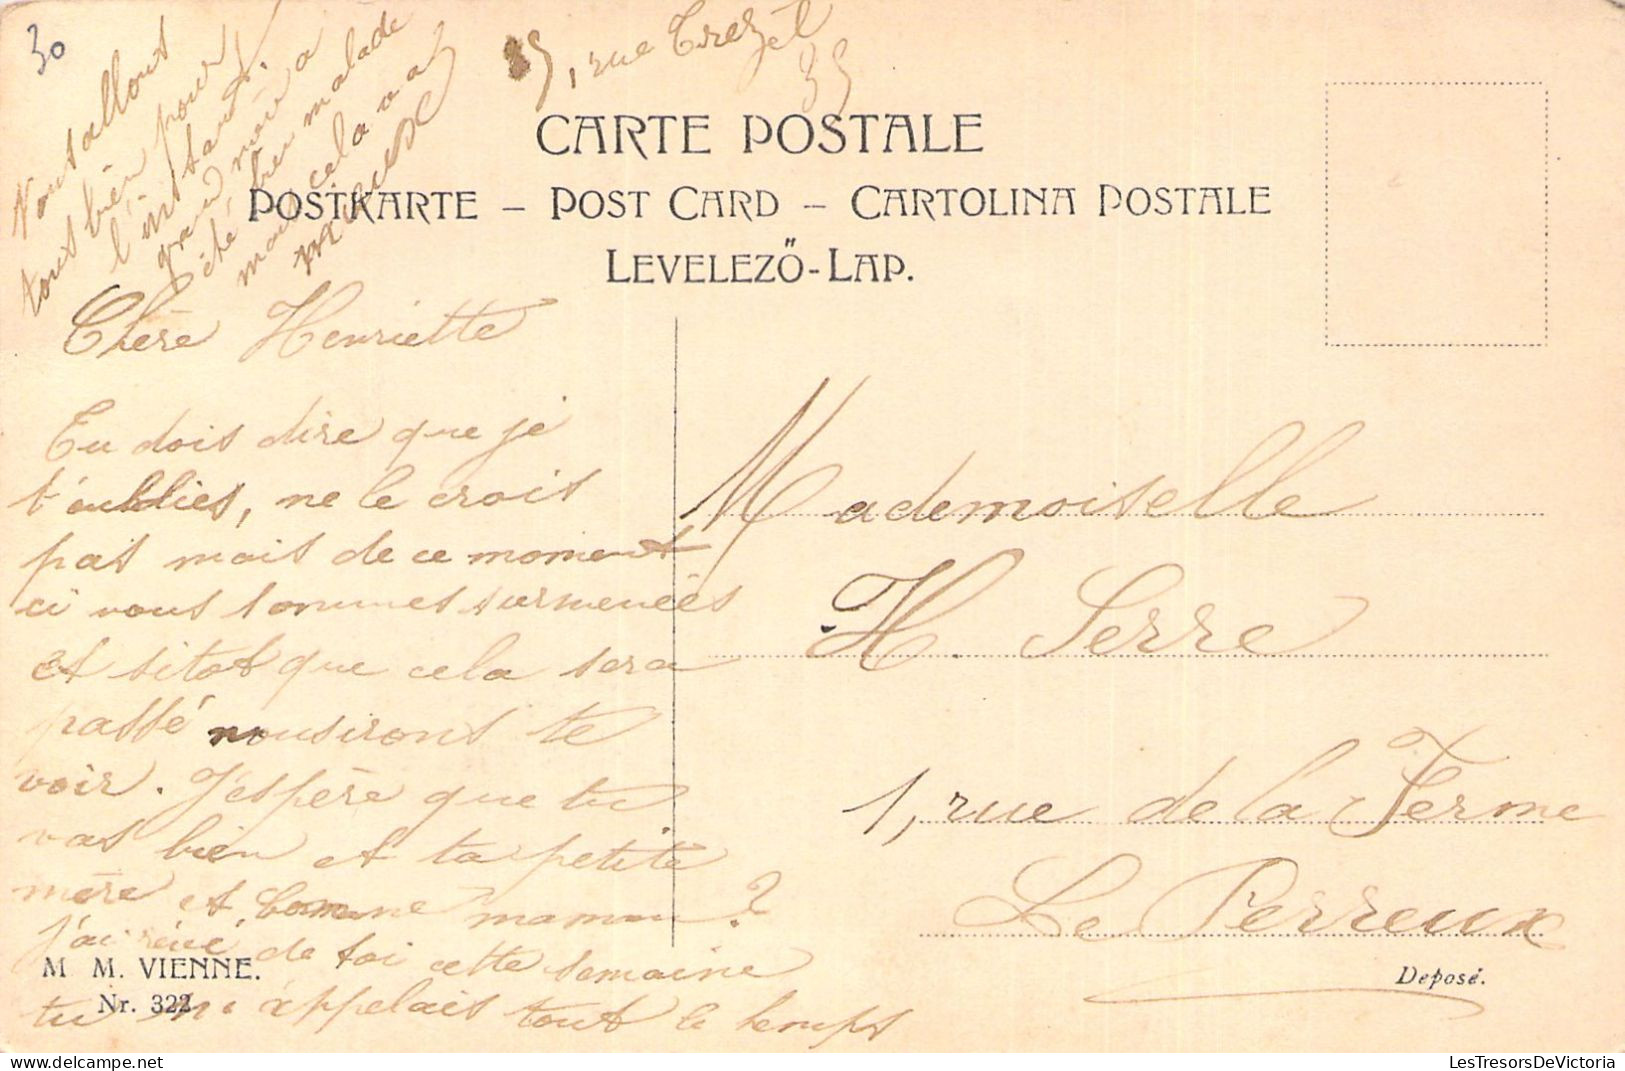 30
Nous allons
tous bien pour
l'instant.
grand mère a
été bien malade
mais cela va
mieux
35, rue Trezel
35
CARTE POSTALE
POSTKARTE – POST CARD – CARTOLINA POSTALE
LEVELEZŐ-LAP.
Chère Henriette
Tu dois dire que je
t'oublies, ne le crois
pas mais de ce moment
ci nous sommes surmenées
et sitot que cela sera
passé nous irons te
voir. J'éspère que tu
vas bien et ta petite
mère et bonne maman?
J'ai rêvé de toi cette semaine
tu m'appelais tout le temps
Mademoiselle
H. Serre
1, rue de la Ferme
Le Perreux
M. M. VIENNE.
Nr. 322
Deposé.
LesTresorsDeVictoria